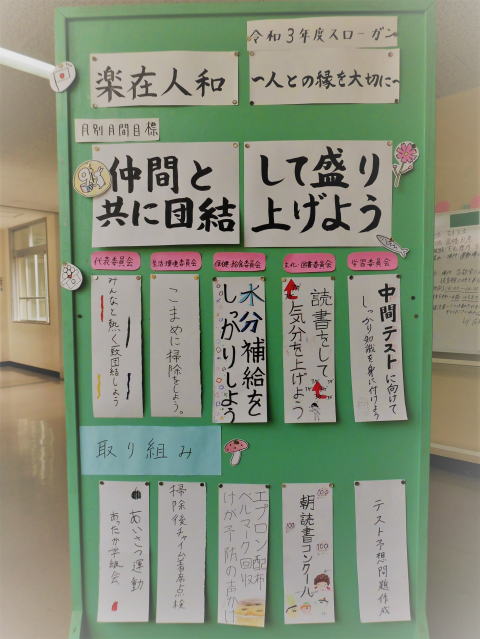 令和3年度スローガン
楽在人和
～人との縁を大切に～
月別月間目標
仲間と
共に団結
して盛り
上げよう
代表委員会
生活・環境委員会
保健・給食委員会
文化・図書委員会
学習委員会
みんなと熱く一致団結しよう
こまめに掃除をしよう。
水分補給を
しっかりしよう
読書をして
気分を上げよう
中間テストに向けて
しっかり勉強を身に付けよう
取り組み
あいさつ運動
あったか学級会
掃除後チャイム着席点検
エプロン配布
ベルマーク回収
けが予防の声かけ
朝読書コンクール
100
100
テスト予想問題作成